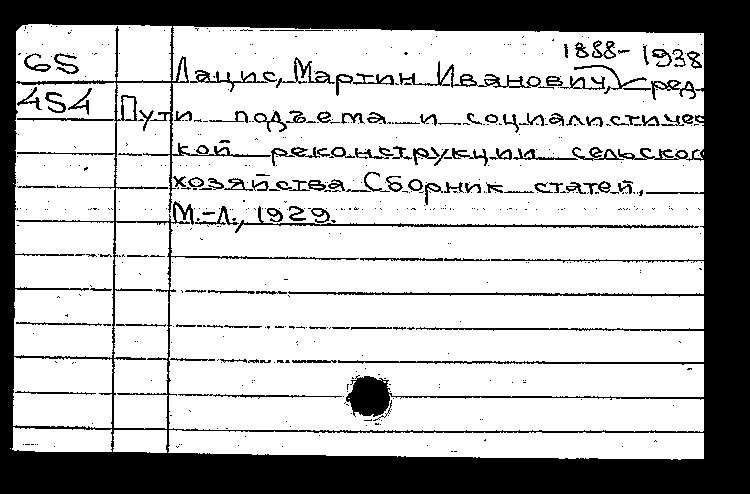 65
454
1888-1938
Лацис, Мартин Иванович, ред.
Пути подъема и социалистичес
кой реконструкции сельского
хозяйства. Сборник статей.
М.-Л., 1929.